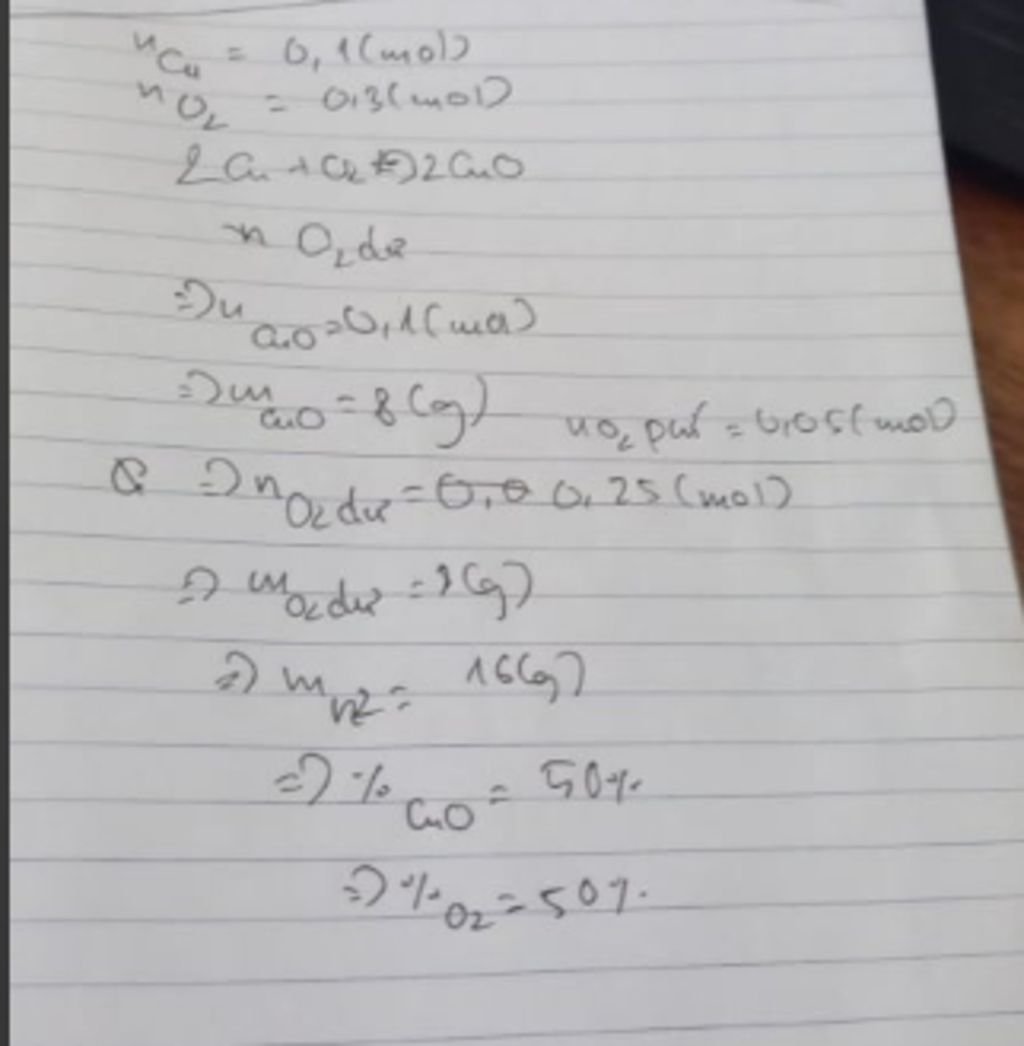 n Cu = 0,1(mol)
n O2 = 0,3(mol)
2Cu + O2 → 2CuO
n O2 dư
=> n CuO = 0,1(mol)
=> m CuO = 8(g) n O2 pứ = 0,05(mol)
=> n O2 dư = 0,25(mol)
=> m O2 dư = 8(g)
=> m = 16(g)
=> % CuO = 50%
=> % O2 = 50%.